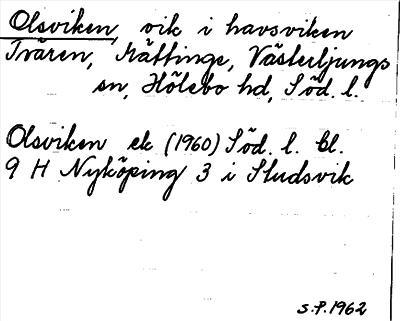 Olsviken, vik i havsviken
Tvären, Hättinge, Västerljungs
sn, Hölebo hd, Söd. l.
Olsviken ek (1960) Söd. l. bl.
9 H Nyköping 3 i Studsvik
S.P. 1962